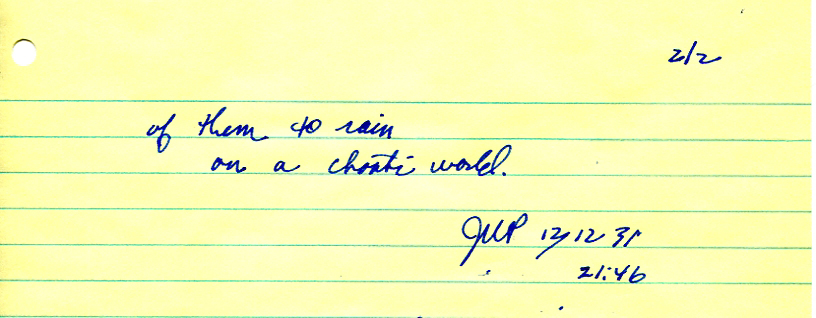 2/2
of them to rain
on a chaoti world.
JMP 12/12 31
21:46